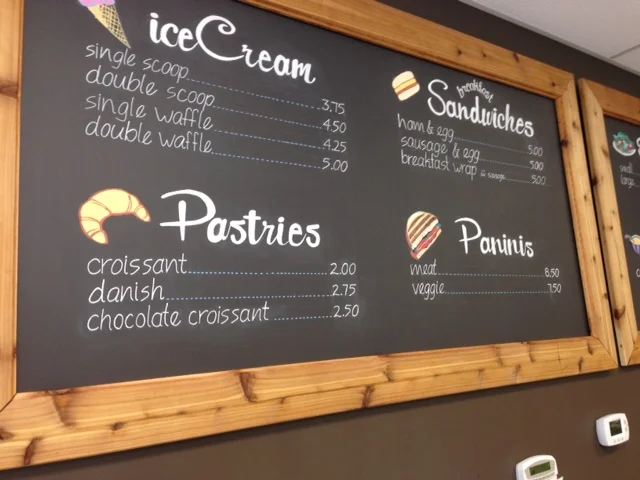 iceCream
single scoop 3.75
double scoop 4.50
single waffle 4.25
double waffle 5.00
Pastries
croissant 2.00
danish 2.75
chocolate croissant 2.50
breakfast
Sandwiches
ham & egg 5.00
sausage & egg 5.00
breakfast wrap w sausage 5.00
Paninis
meat 8.50
veggie 7.50
small